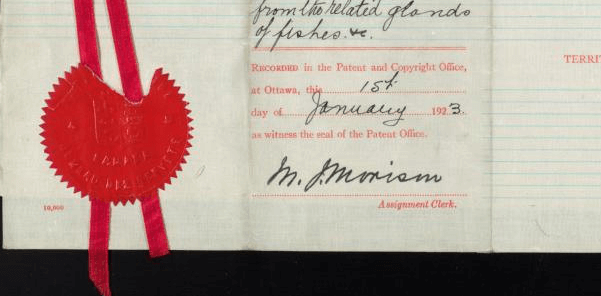 from the related glands
of fishes. &c.
RECORDED in the Patent and Copyright Office,
at Ottawa, this 15t
day of January 1923.
as witness the seal of the Patent Office.
M. J. Morison
Assignment Clerk.
10,000
TERRI
CANADA